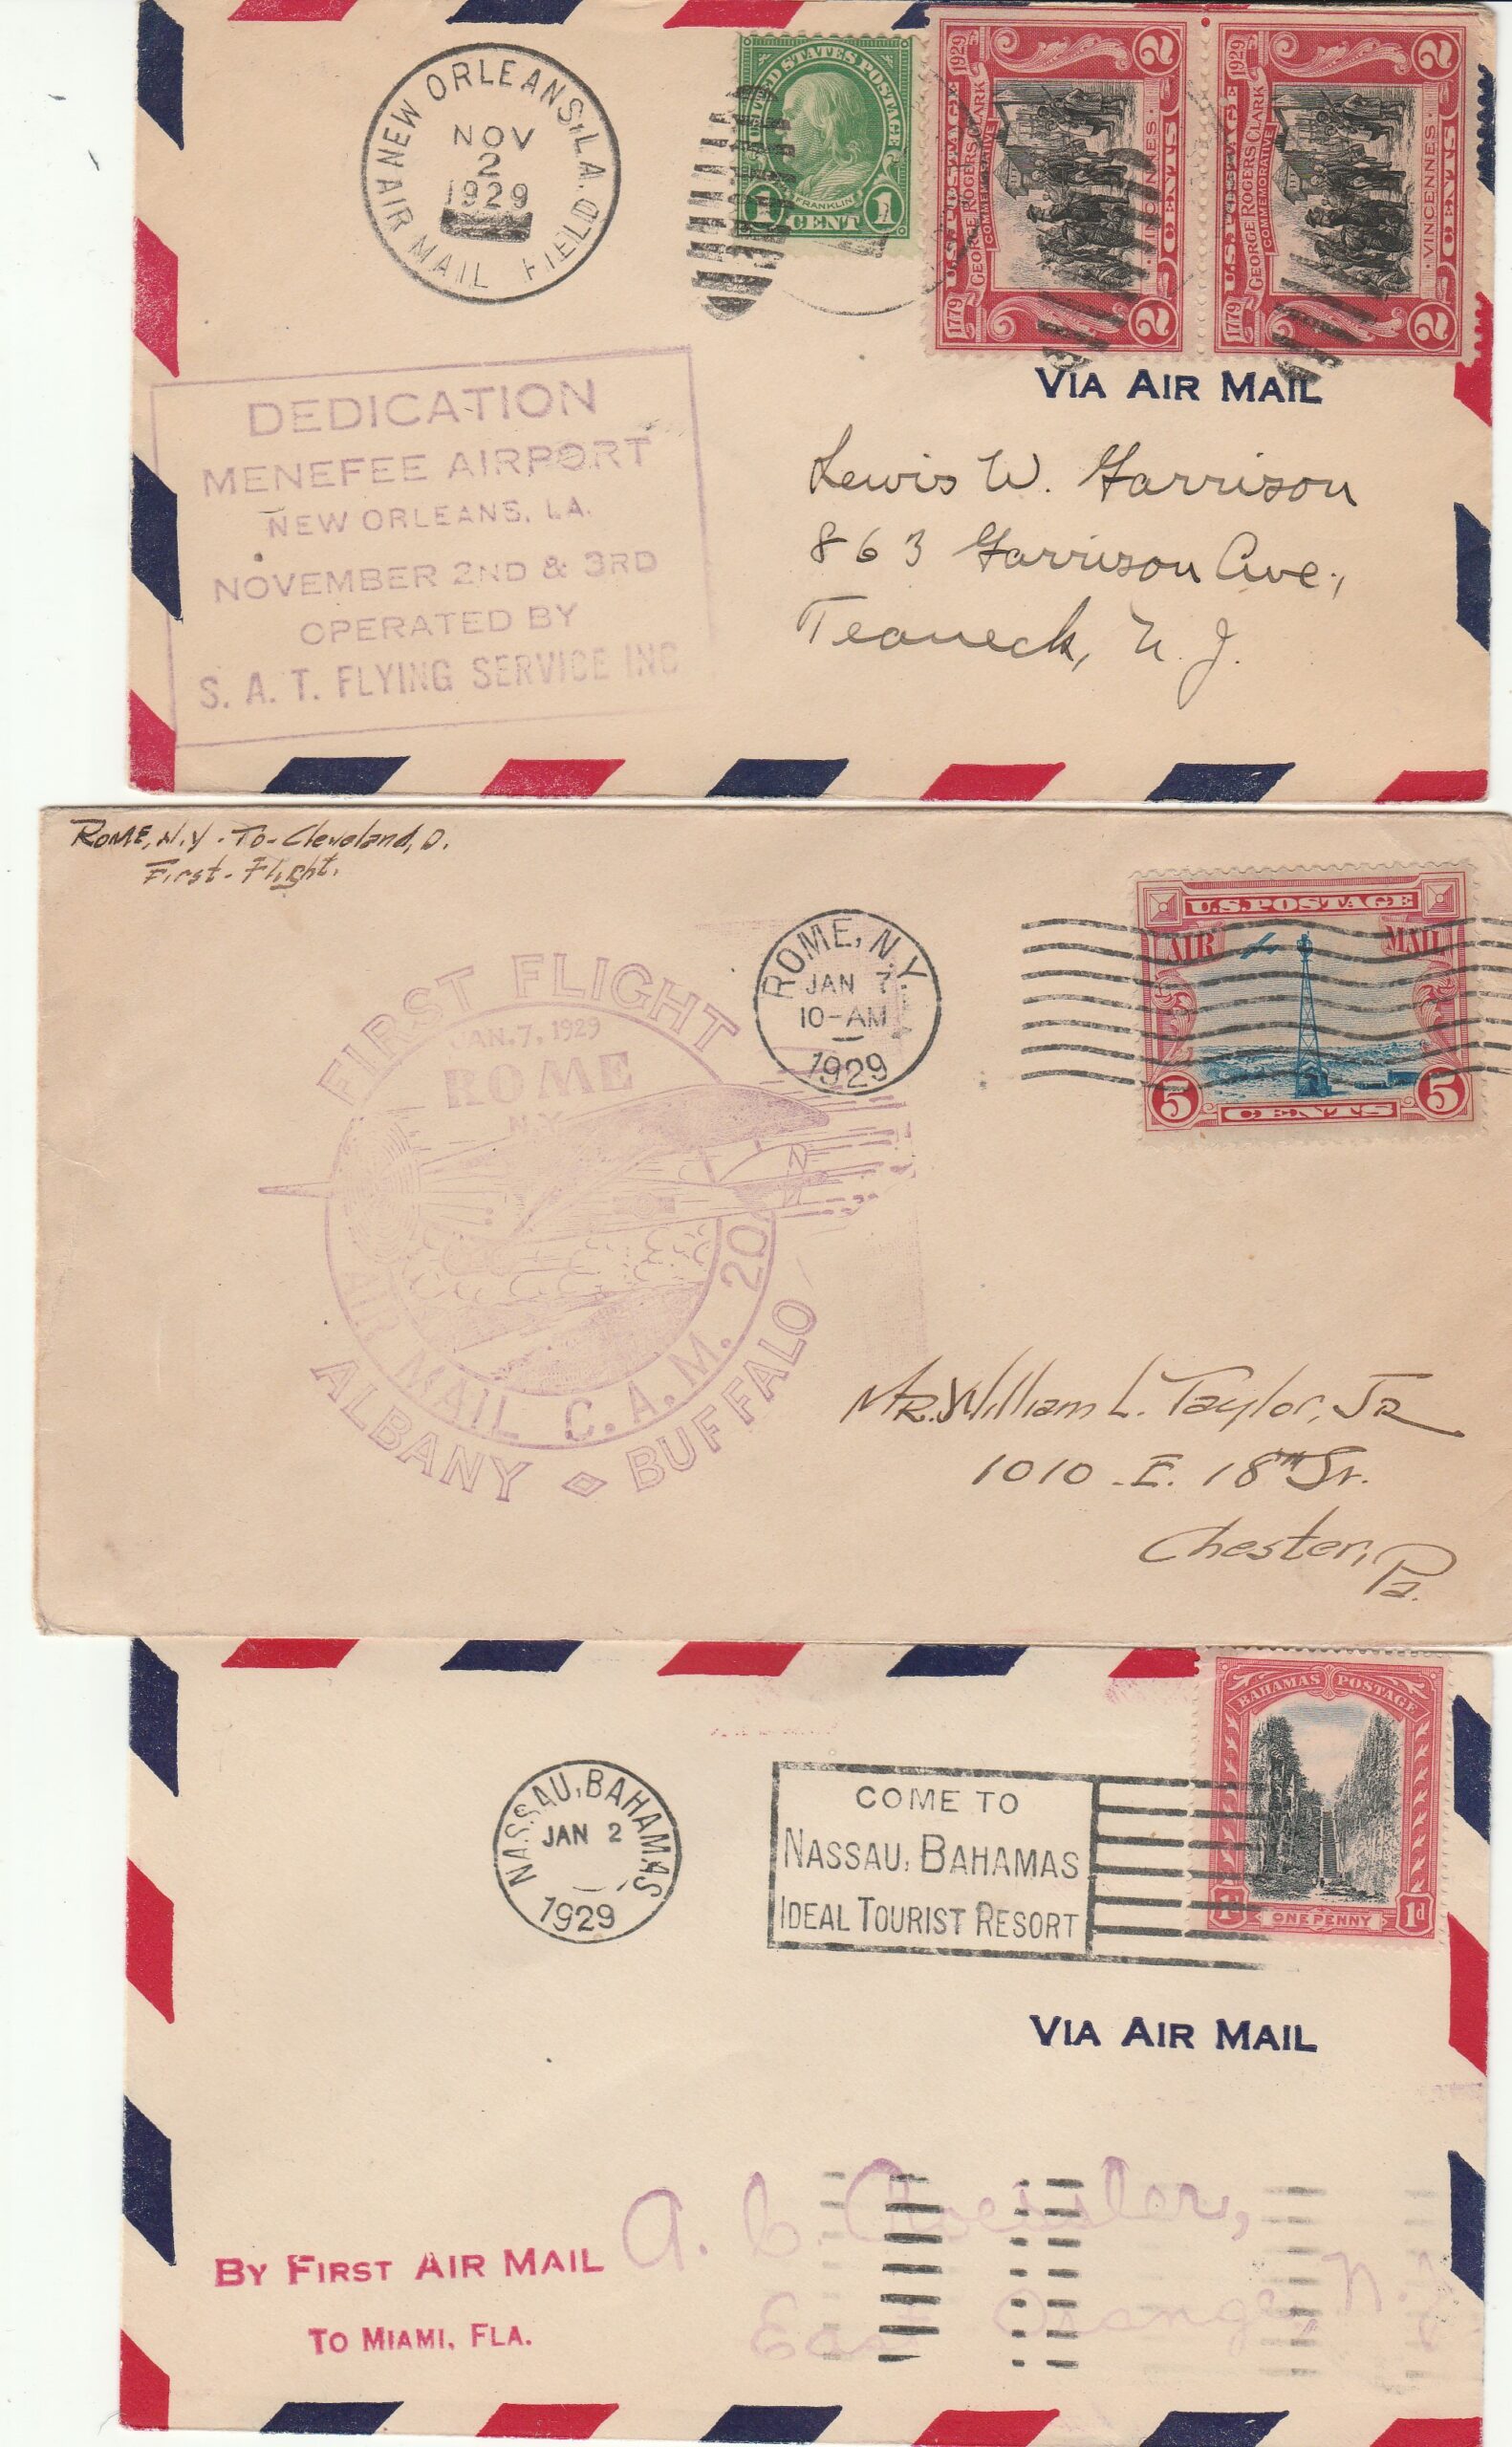 NEW ORLEANS, LA.
NOV
2
1929
AIR MAIL FIELD
UNITED STATES POSTAGE
FRANKLIN
1 CENT 1
U.S. POSTAGE
1779 GEORGE ROGERS CLARK 1929
COMMEMORATIVE
VINCENNES
2 CENTS 2
U.S. POSTAGE
1779 GEORGE ROGERS CLARK 1929
COMMEMORATIVE
VINCENNES
2 CENTS 2
VIA AIR MAIL
DEDICATION
MENEFEE AIRPORT
NEW ORLEANS, LA.
NOVEMBER 2ND & 3RD
OPERATED BY
S. A. T. FLYING SERVICE INC
Lewis W. Garrison
863 Garrison Ave.,
Teaneck, N. J.
ROME, N.Y. - To - Cleveland, O.
First - Flight.
ROME, N.Y.
JAN 7
10-AM
1929
U.S. POSTAGE
AIR MAIL
5 CENTS 5
FIRST FLIGHT
JAN. 7, 1929
ROME
N.Y.
AIR MAIL C.A.M. 20
ALBANY BUFFALO
MR. William L. Taylor, JR
1010 - E. 18TH St.
Chester,
Pa.
NASSAU, BAHAMAS
JAN 2
1929
COME TO
NASSAU, BAHAMAS
IDEAL TOURIST RESORT
BAHAMAS POSTAGE
1d ONE PENNY 1d
VIA AIR MAIL
A. C. Roessler,
East Orange, N. J.
BY FIRST AIR MAIL
TO MIAMI, FLA.